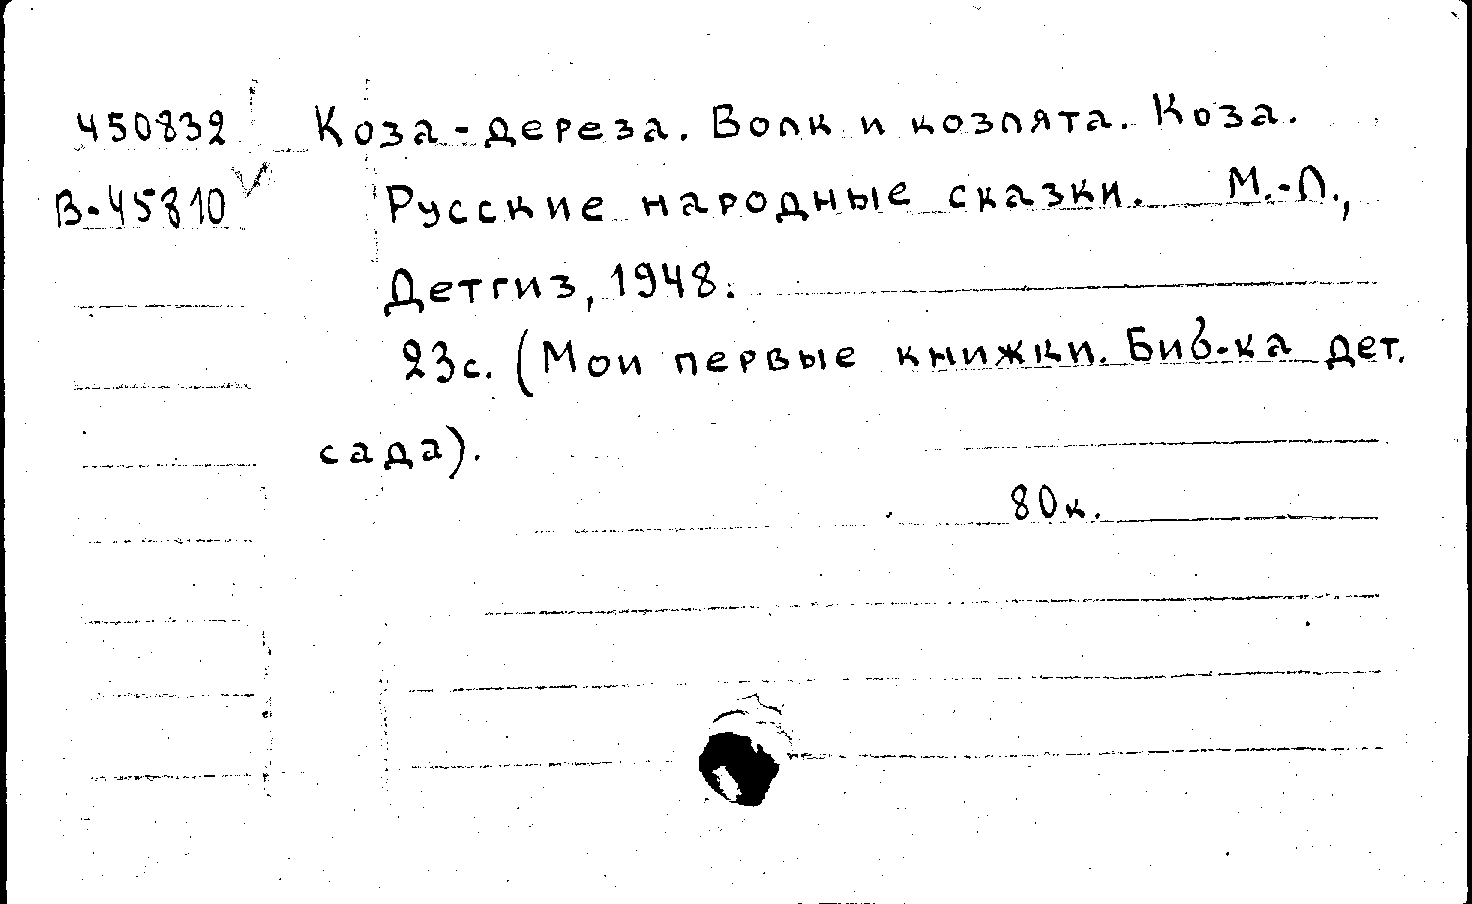 450832 Коза-дереза. Волк и козлята. Коза.
В-45810 Русские народные сказки. М.-Л.,
Детгиз, 1948.
23с. (Мои первые книжки. Биб-ка дет.
сада).
80к.